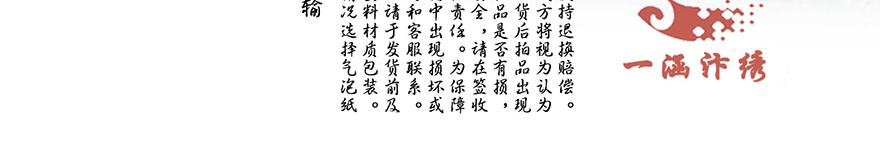 持退换赔偿。
方将视为认为
货后拍品出现
品是否有损，
全，请在签收
责任。为保障
中出现损坏或
和客服联系。
请于发货前及
料材质包装。
况选择气泡纸
输
一涵汴绣